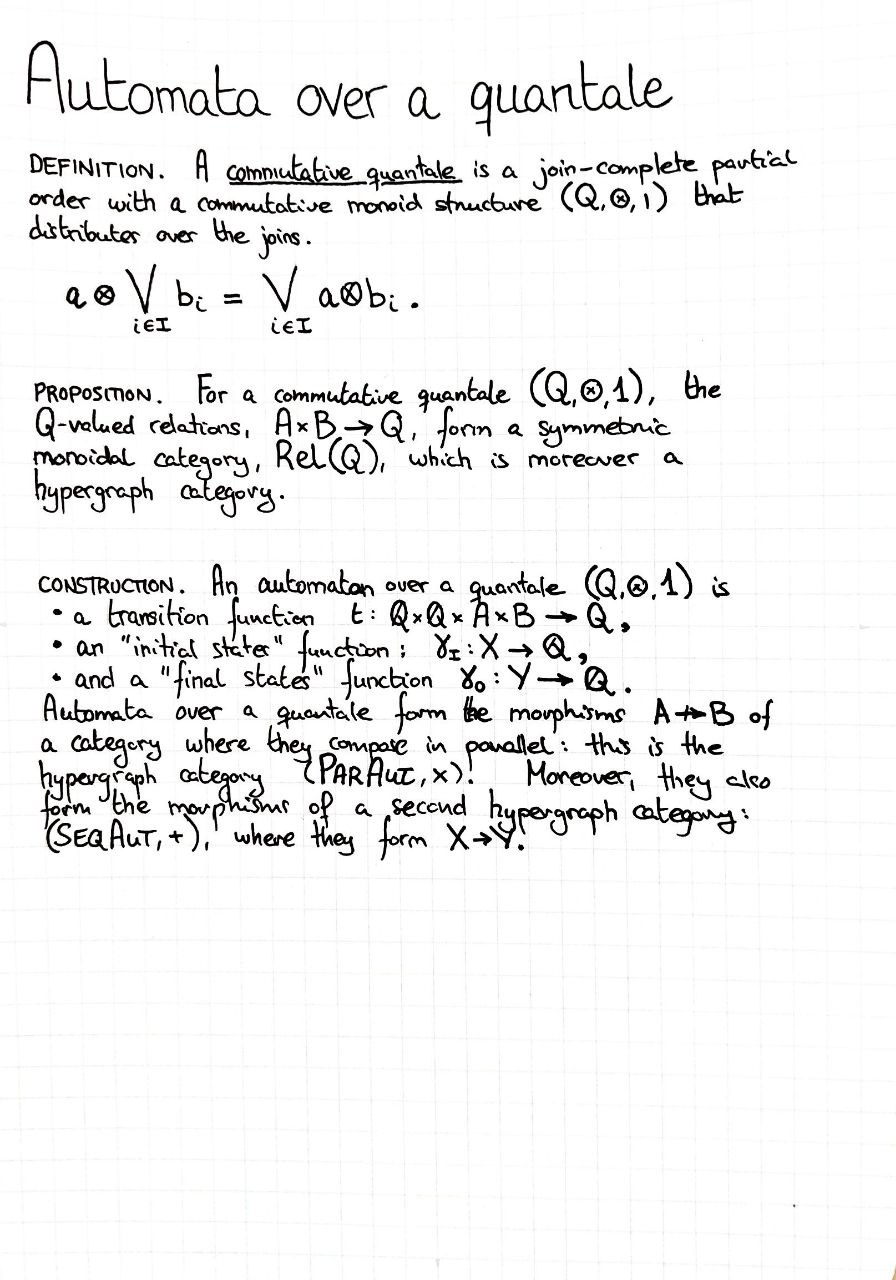 Automata over a quantale
DEFINITION. A commutative quantale is a join-complete partial
order with a commutative monoid structure (Q,⊗,1) that
distributes over the joins.
a ⊗ ⋁ bᵢ = ⋁ a⊗bᵢ.
i∈I i∈I
PROPOSITION. For a commutative quantale (Q,⊗,1), the
Q-valued relations, A×B→Q, form a symmetric
monoidal category, Rel(Q), which is moreover a
hypergraph category.
CONSTRUCTION. An automaton over a quantale (Q,⊗,1) is
• a transition function t: Q×Q×A×B → Q,
• an "initial states" function; γ_I : X → Q,
• and a "final states" function γ₀ : Y → Q.
Automata over a quantale form the morphisms A⇸B of
a category where they compose in parallel: this is the
hypergraph category (PARAUT, ×). Moreover, they also
form the morphisms of a second hypergraph category:
(SEQAUT, +), where they form X→Y.